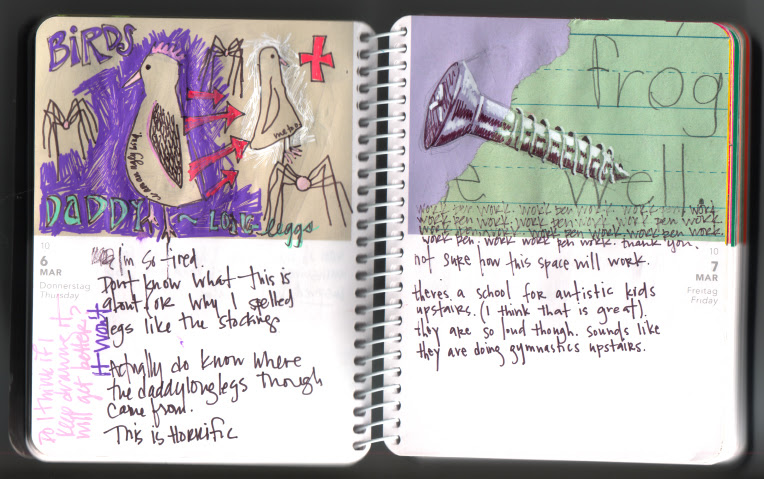 BiRDS
me too
DADDY ~ LONG leggs
10
6
MAR
Donnerstag
Thursday
I'm so tired
Dont know what this is
about or why I spelled
legs like the stockings
Actually do know where
the daddylonglegs though
came from.
This is Horrific
Do I think if I
keep drawing it,
will get better?
It Won't
frog
e well
work pen work. work pen work. work
work pen work. work pen work. work pen work. work
work pen. work work pen work. thank you.
not sure how this space will work.
theres a school for autistic kids
upstairs. (I think that is great).
they are so loud though. sounds like
they are doing gymnastics upstairs.
10
7
MAR
Freitag
Friday